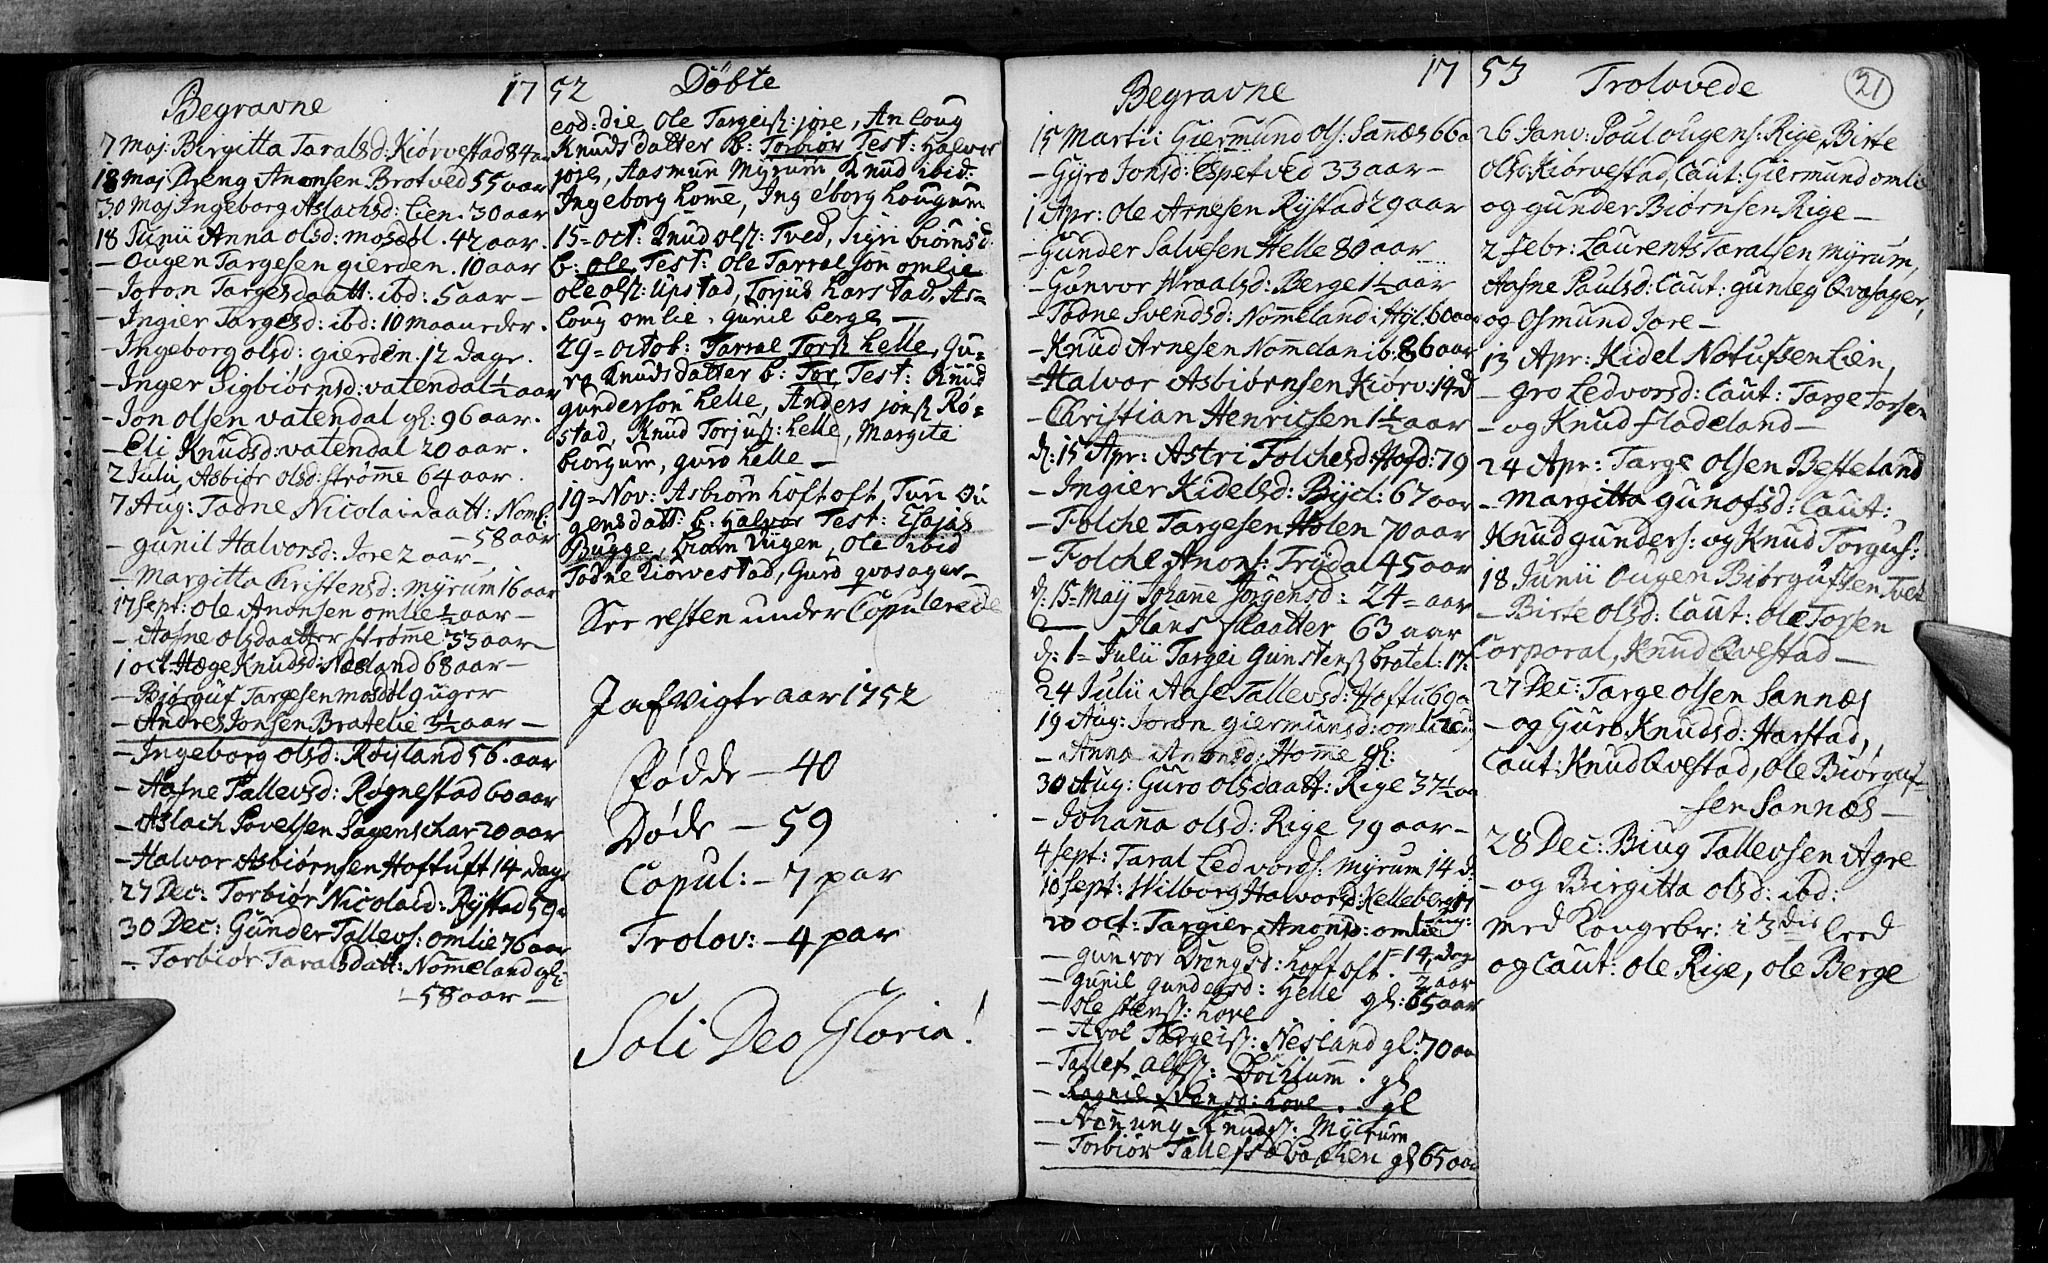 1752
Begravne
7 Maj: Birgitta Taralsd: Kiørvestad 84 aar
18 Maj Dreng Anonsen Brotved 55 aar
30 Maj Ingeborg Aslachsd: Lien. 30 aar
18 Junii Anna olsd: mosdøl. 42 aar.
– Ougen Targesen gierden. 10 aar
– Joron Targesdaatt: ibd: 5 aar –
– Ingier Targesd: ibd: 10 maaneder.
– Ingeborg olsd: gierden. 12 dage.
– Inger Sigbiørnsd: vatendal ½ aar
– Jon olsen vatendal gl: 96 aar.
– Eli Knudsd: vatendal 20 aar.
2 Julii Asbiør olsd: strømme 64 aar.
7 Aug: Todne Nicolaidaatt: Noml:
– 58 aar
– gunil Halvorsd: Jore 2 aar –
– Margitta Christensd: myrum 16 aar
17 Sept: Ole Anonsen omlie ½ aar –
– Aasne olsdaatter strøme 33 aar –
1 oct. Hæge Knudsd: Næsland 68 aar –
– Biørguf Targesen mosdøl 9 uger
– Andres Jonsen Bratelie 3½ aar –
– Ingeborg olsd: Røysland 56. aar
– Aasne Tallevsd: Røgnestad 60 aar
– Aslach Povelsen Sagenschar 20 aar
– Halvor Asbiørnsen Hoftuft 14 dage
27 Dec: Torbiør Nicolaid: Rystad 59 a
30 Dec: Gunder Tallevs: omlie 76 aar
– Torbiør Taralsdatt: Nomeland gl:
– 58 aar –
Døbte
eod: die Ole Targeiß: jore, Anloug
Knudsdatter b: Torbiør Test: Halvor
jore, Aasmun Myrum Knud ibid:
Ingeborg home, Ingeborg Lougum
15= oct: Knud olß: Tved, Sigri biørnsd:
b: ole Test: ole Tarralsøn omlie
ole olß: Upstad, Torjus harstad, As=
loug omlie, gunil berge –
29= octob: Tarral Torß helle, Gu=
ro Knudsdatter b: Tor Test: Knud
gundersøn helle, Anders jonß Rø=
stad, Knud Torjuß: helle, Margite
biorgum, guro helle –
19= Nov: Asbiørn hoftoft, Turi Ou
gensdatt: b: Halvor Test: Esajas
Bugge, biørn Viigen, Ole ibid
Todne Kiørvestad, Guro qvasager –
See resten under Copulerede
J afvigte aar 1752
Fødde – 40
Døde – 59
Copul: – 7 par
Trolov: – 4 par
Soli Deo Gloria!
1753
21
Begravne
15 Martii Giermund ols: Sannæs 66 a
– Gyro Jonsd: Espetved 33 aar –
1 Apr: Ole Arnesen Rystad 29 aar
– Gunder Salvesen Helle 80 aar –
– Gunvor Araalsd: Berge 1½ aar
– Todne Svendsd: Nomeland i Hyl. 60 aar
– Knud Arnesen Nomelan ib: 86 aar
– Halvor Asbiørnsen Kiørv: 14 d
– Christian Henricsen 1½ aar
d: 15 Apr: Astri Folchesd: Hofd: 79
– Ingier Kidelsd: Bycl: 67 aar
– Folche Targesen Holen 70 aar
– Folche Anons: Frydal 45 aar
d: 15 = Maij Johane Jørgensd: 24 = aar
Hans Maatter 63 aar
d: 1 = Julii Targei Gunstenß bratel: 17.
24 Julii Aase Tallevsd: Hoftu 69 a
19 Aug: Joron giermunsd: omlie
– Anna Anonsd: Home gl:
30 Aug: Guro olsdaatt: Rige 37½ aa
– Johana olsd: Rige 79 aar –
4 Sept: Taral Ledvords: myrum 14 d.
10 Sept: Wilborg Halvord: Kelleberg
20 oct: Targier Anonsd: omlie
– gunvor Drengsd: hoftoft. – 14. dag
– gunil gundersd: Helle 2 aar
– ole stenß: hove gl: 65 aar
– Avol Targeiß: Nesland gl: 70 aa
– Tallef Alfß: . gl
– Ragnil Svensd: hove . gl
– Knudß: Myrum
– Torbiør Tallefsd gl 65 aa
Trolovede
26 Janv: Poul ougens: Rige, Birte
olsd: Kiørvestad, Caut: Giermund omlie
og gunder Biørnsen Rige –
2 Febr: Laurents Taralsen myrum,
Aasne Paulsd: Caut: gunleg Qvasager,
og Osmund Jore –
13 Apr: Kidel Notufsen Lien,
– gro Ledvorsd: Caut: Targe Torsen
– og Knud Fladeland –
24 Apr: Targe olsen Besteland
– Margitta gunofsd: Caut:
Knud gunders: og Knud Torgus:
18 Junii Ougen Biørgufsen Tvet
– Birte olsd: Caut: ole Torsen
Corporal, Knud Qvestad –
27 Dec: Targe olsen Sannæs
– og Guro Knudsd: Harstad,
Caut: Knud Qvestad, ole Biørguf=
sen Sannæs –
28 Dec: Biug Tallevsen Agre
– og Birgitta olsd: ibd:
med Kongebr: i 3die leed
og Caut: ole Rige, ole Berge